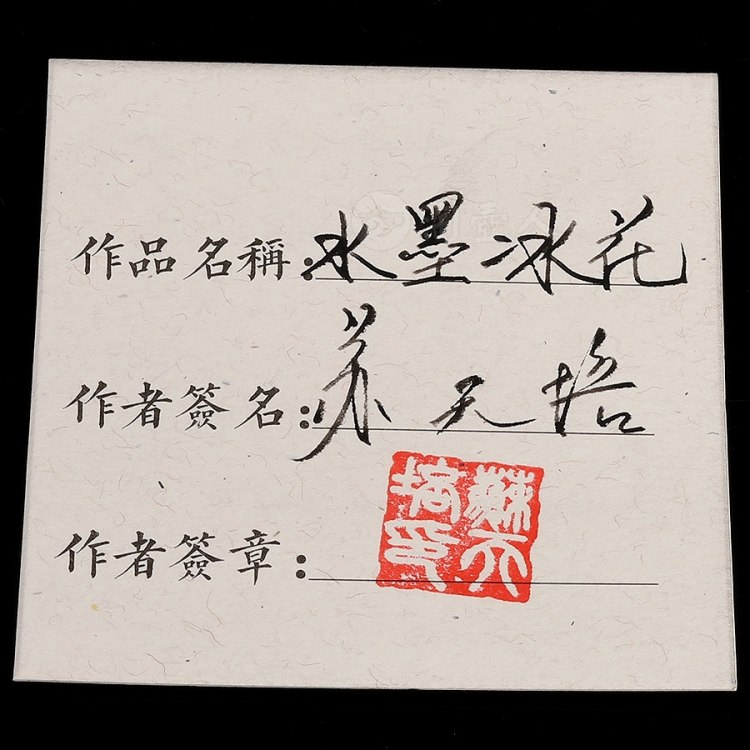 作品名稱：水墨冰花
作者簽名：苏天培
作者簽章：
蘇天
培印